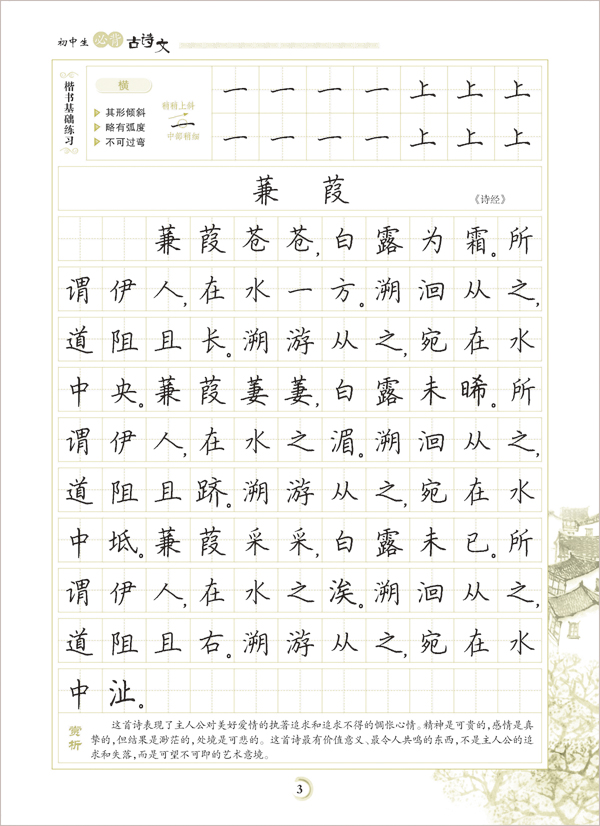 初中生 必背 古诗文
楷书基础练习
横
其形倾斜
略有弧度
不可过弯
稍稍上斜
一
中部稍细
一 一 一 一 上 上 上
一 一 一 一 上 上 上
蒹 葭
《诗经》
蒹葭苍苍,白露为霜。所
谓伊人,在水一方。溯洄从之,
道阻且长。溯游从之,宛在水
中央。蒹葭萋萋,白露未晞。所
谓伊人,在水之湄。溯洄从之,
道阻且跻。溯游从之,宛在水
中坻。蒹葭采采,白露未已。所
谓伊人,在水之涘。溯洄从之,
道阻且右。溯游从之,宛在水
中沚。
赏析
这首诗表现了主人公对美好爱情的执著追求和追求不得的惆怅心情。精神是可贵的,感情是真
挚的,但结果是渺茫的,处境是可悲的。这首诗最有价值意义、最令人共鸣的东西,不是主人公的追
求和失落,而是可望不可即的艺术意境。
3